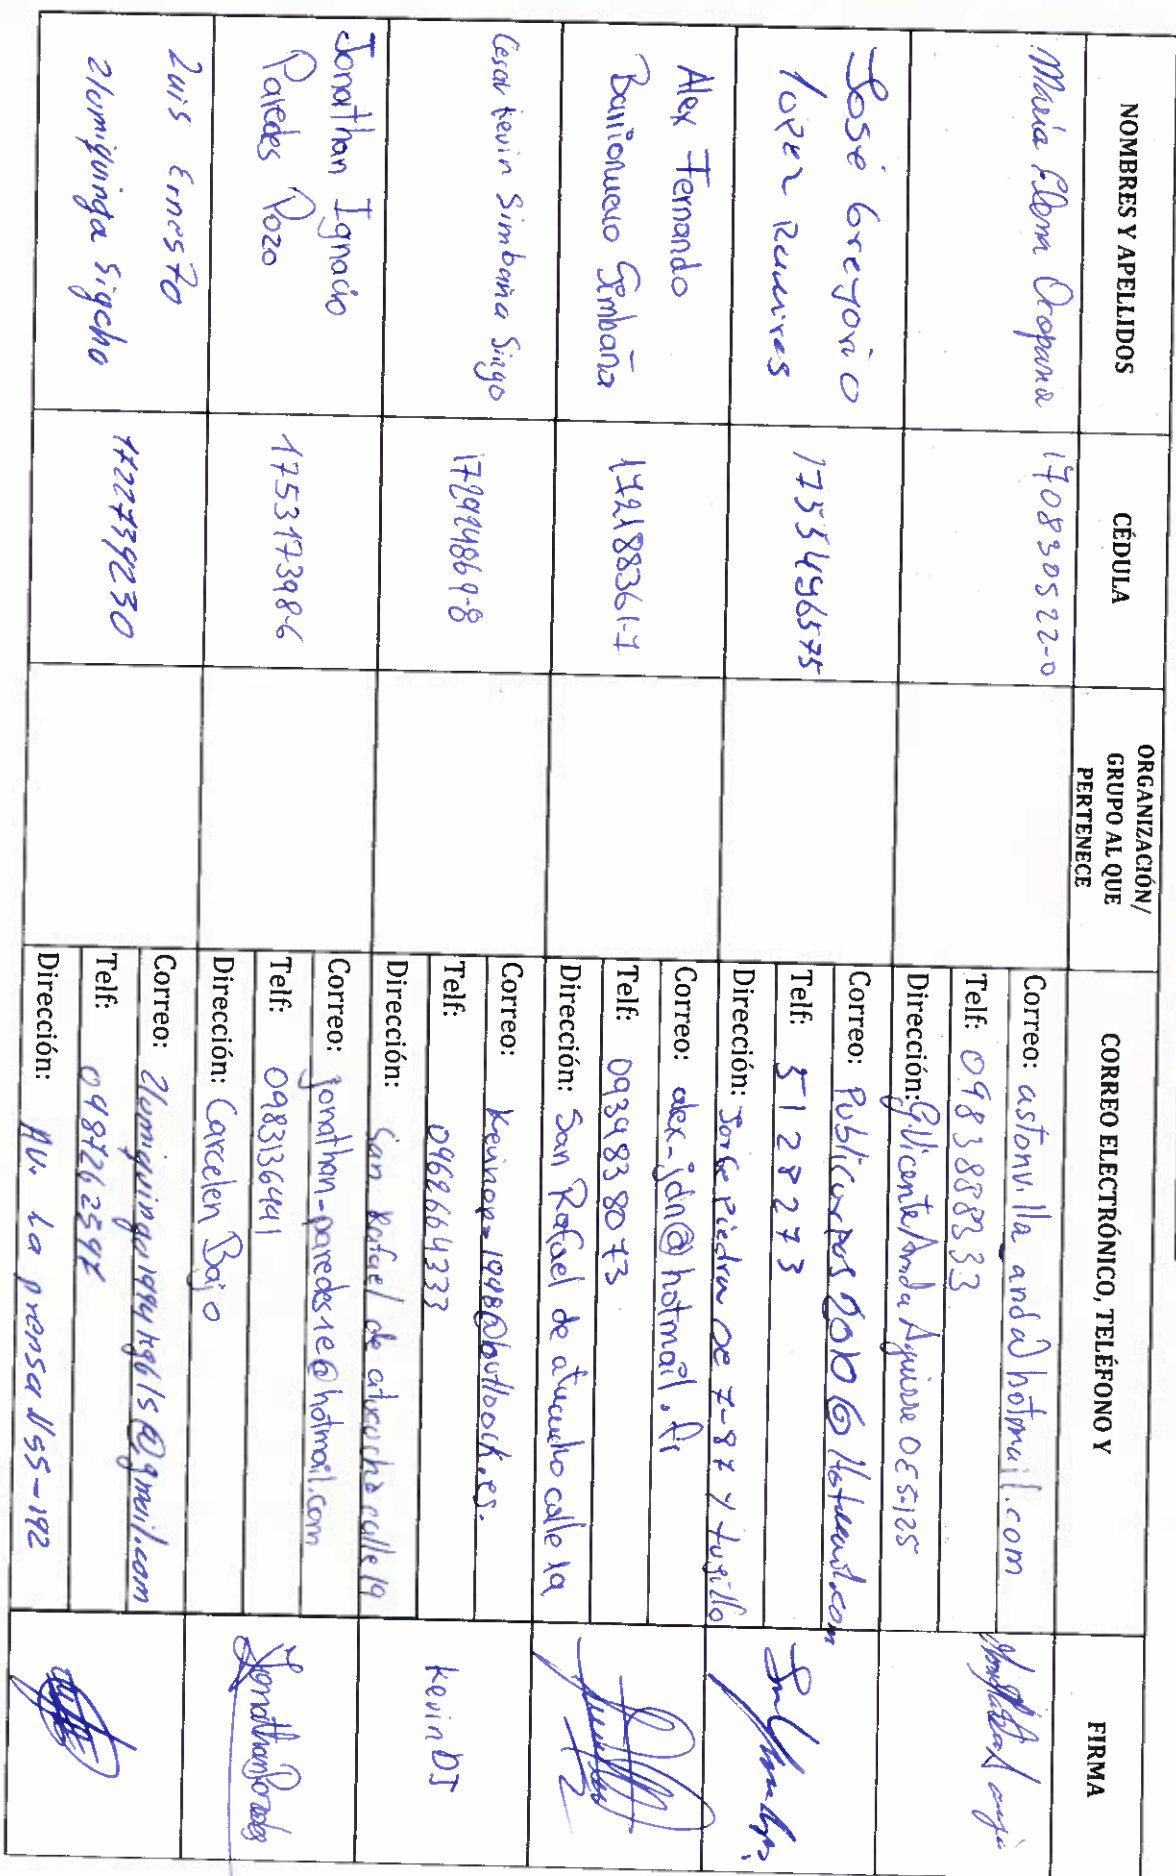 NOMBRES Y APELLIDOS
CÉDULA
ORGANIZACIÓN/
GRUPO AL QUE
PERTENECE
CORREO ELECTRÓNICO, TELÉFONO Y
FIRMA
María Elena Oropania
170830522-0
Correo: astonvilla_and@hotmail.com
Telf: 0983888333
Dirección: G. Vicente Anda Aguirre OE5-125
José Gregorio
Yopez
1755496575
Correo:
Telf: 51 28 273
Dirección: Jorge Piedra OE 7-87 y
Alex Fernando
Barrionuevo Simbaña
172188361-7
Correo: alex-jdn@hotmail.fr
Telf: 0939838073
Dirección: San Rafael de atucucho calle 19
Cesar Kevin Simbaña Singo
172924869-8
Correo:
Telf: 0962664333
Dirección: San Rafael de atucucho calle 19
Kevin DJ
Jonathan Ignacio
Paredes Pozo
175317398-6
Correo: jonathan-paredes1e@hotmail.com
Telf: 0983136441
Dirección: Carcelen Bajo
Jonathan Paredes
Luis Ernesto
Zlumiquinga Sigcho
1722739230
Correo:
Telf:
Dirección: AV. La prensa N55-192